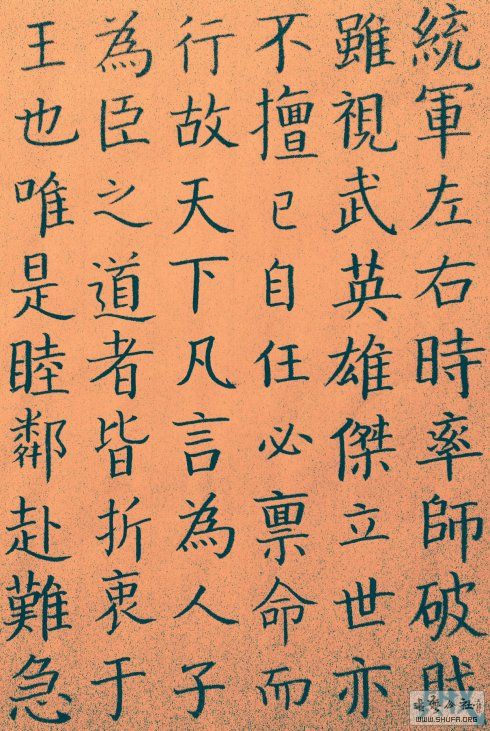 統軍左右時率師破
雖視武英雄傑立世亦
不擅己自任必禀命而
行故天下凡言為人子
為臣之道者皆折衷于
王也唯是睦鄰赴難急
WWW.SHUFA.ORG